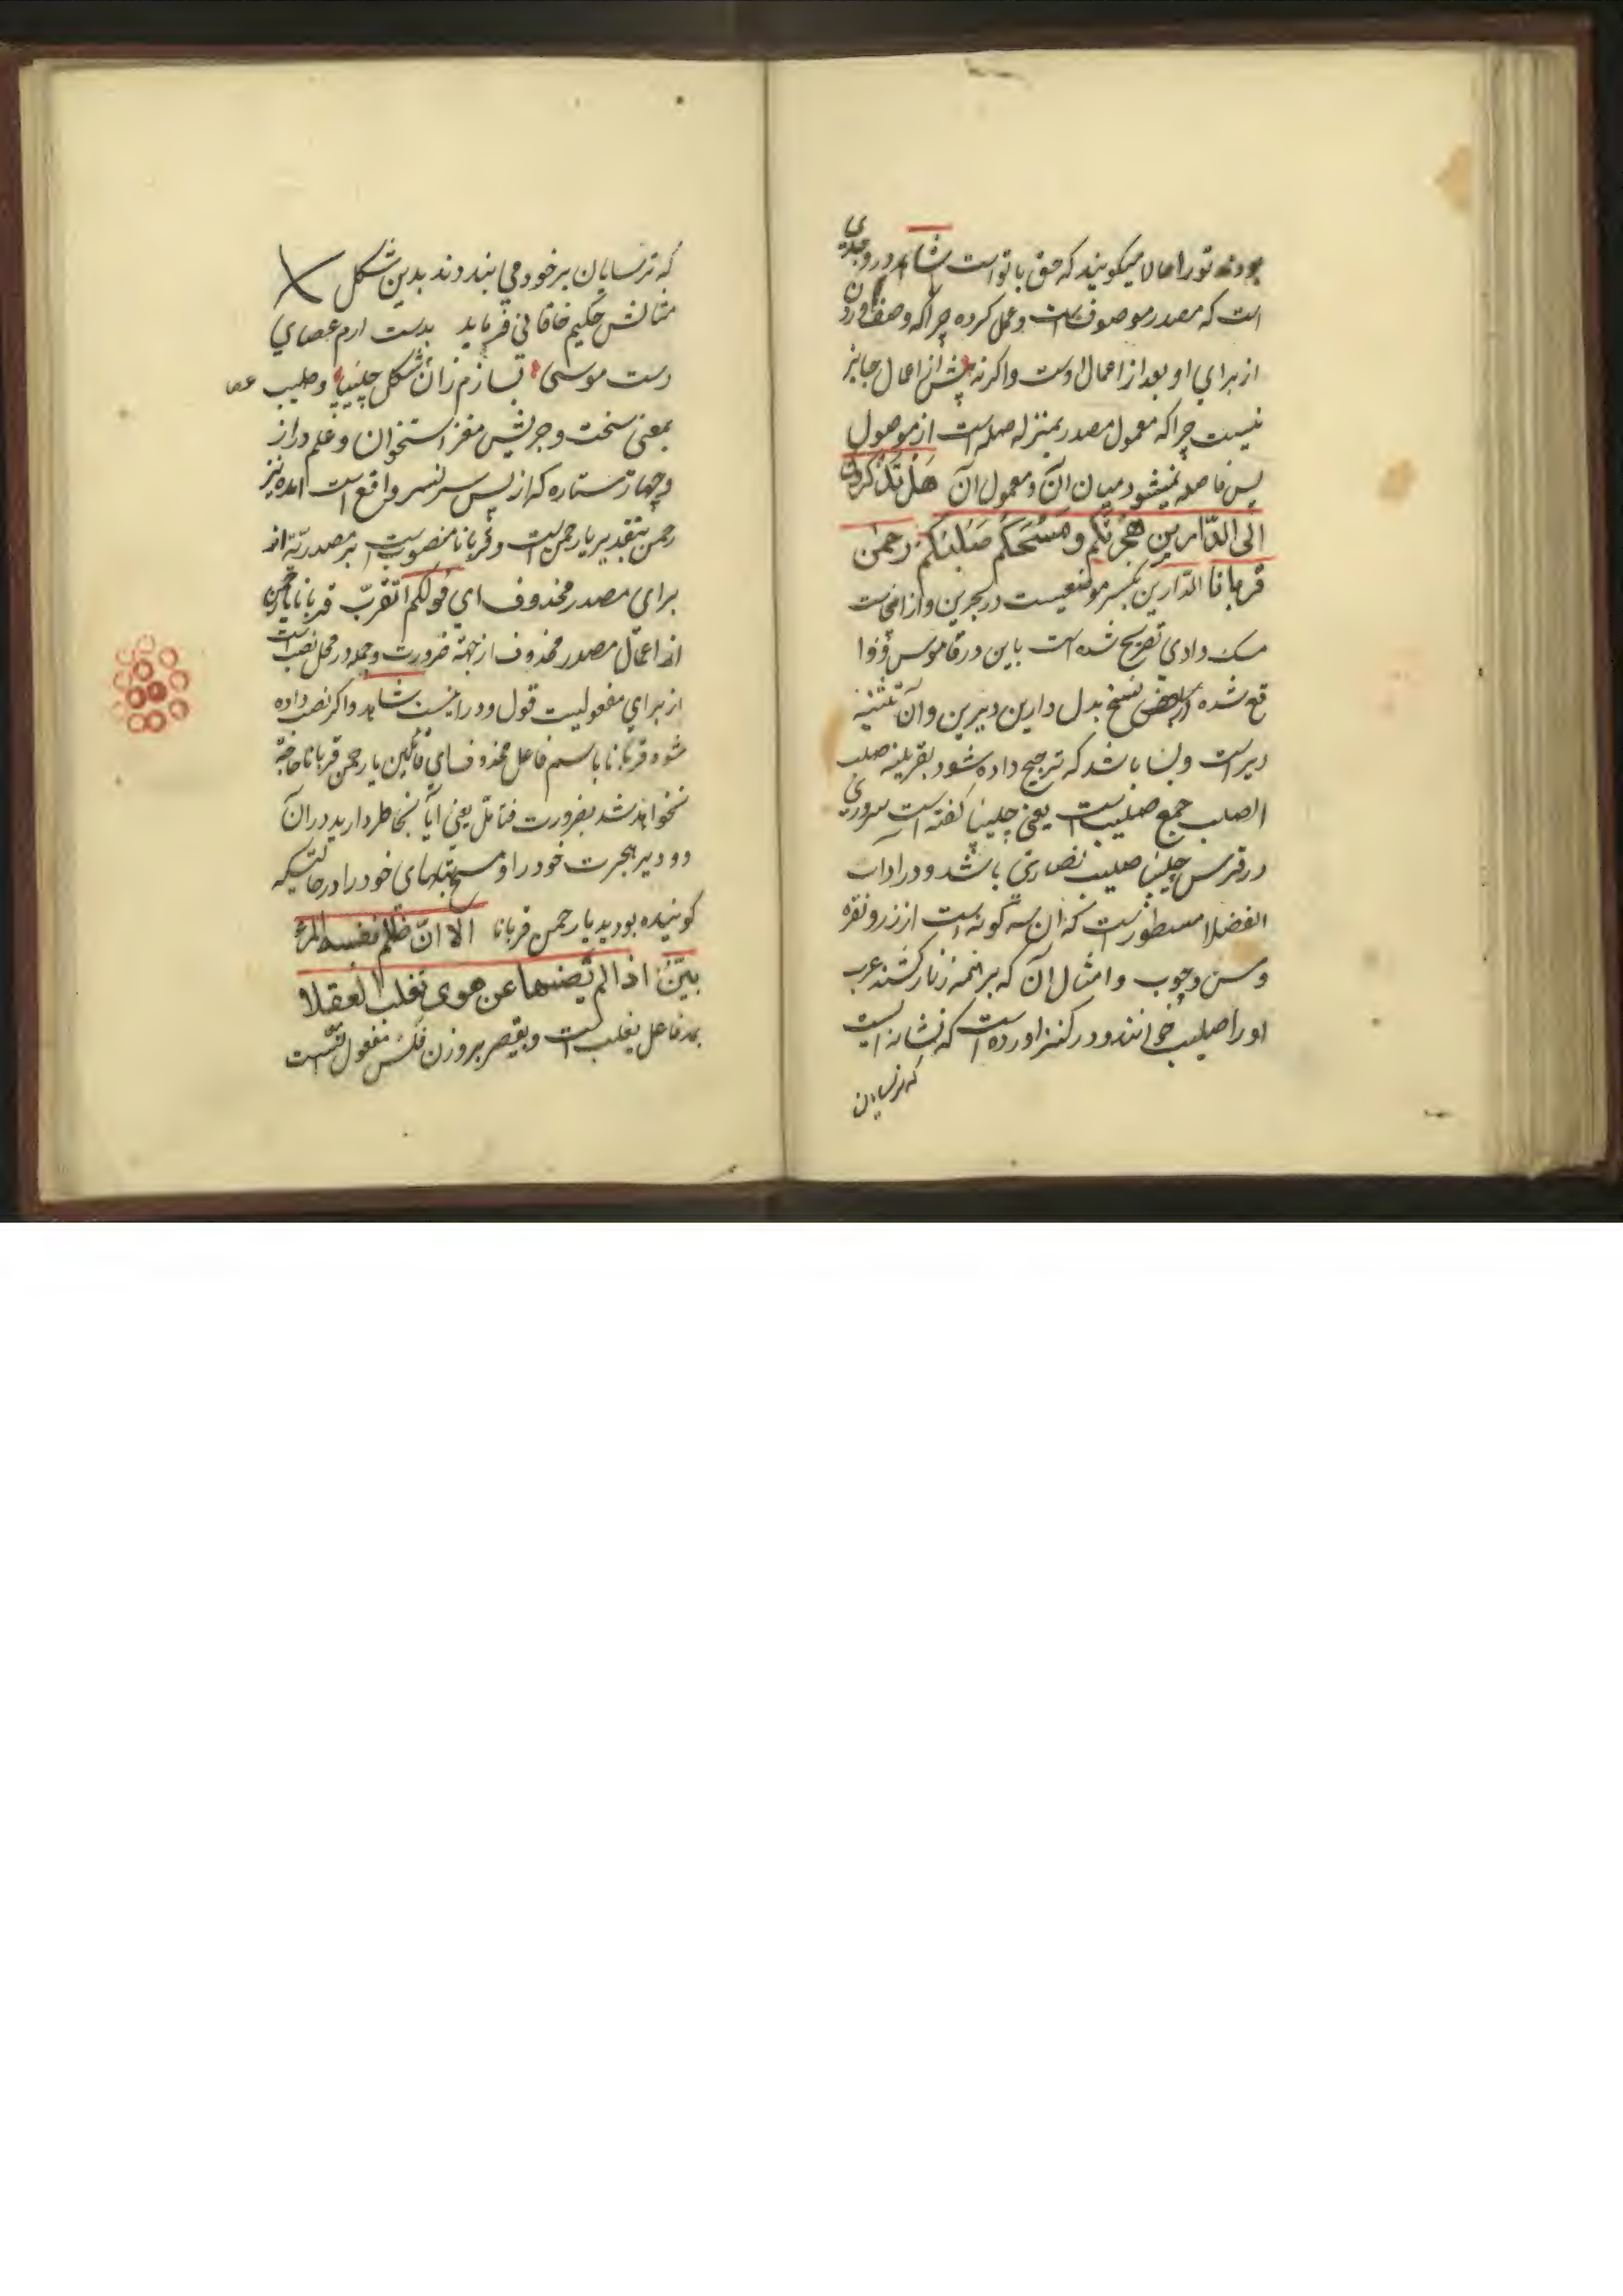 بودند تو را حالا میگویند که حق با تو است شاهد در وجدی
است که مصدر موصوف است و عمل کرده چرا که وصف آوردن
از برای او بعد از اعمال اوست و اگر نه پیش از اعمال جایز
نیست چرا که معمول مصدر بمنزله صله است از موصول
پس فاصله نمیشود میان آن و معمول آن هَل تذکرون
الی الدّارین هجرتکم و مسحکم صلبکم رحمن
قربانا الدّارین بکسر موضعیست در بحرین و از انجاست
مسک داری تصریح شده است باین در قاموس و وا
قع شده در بعضی نسخ بدل دارین دیرین و آن تثنیه
دیر است و بسا باشد که ترجیح داده شود بقرینه صلب
الصلب جمع صلیب است یعنی چلیپا گفته است سروری
در فرس چلیپا صلیب نصاری باشد و در ادات
الفضلا مسطور است که آن سه گونه است از زر و نقره
و مس و چوب و امثال آن که بر زنار کشند عرب
او را صلیب خوانند و در کنز آورده است که نشانه ایست
که ترسایان
که ترسایان بر خود می بندند بدین شکل
مثالش حکیم خاقانی فرماید بدست ارم عصای
دست موسی بسازم زان شکل چلیپا و صلیب
بمعنی سخت و چربش مغز استخوان و علم دراز
و چهار ستاره که از پس سر نسر واقع است آمده نیز
رحمن بتقدیر یا رحمن است و قربانا منصوب است بر مصدریّة
برای مصدر محذوف ای قولکم اتقرّب قربانا یا رحمن
اعمال مصدر محذوف از جهة ضرورت و جمله در محل نصب است
از برای مفعولیت قول و در اینست شاهد و اگر نصب داده
شود قربانا باسم فاعل محذوف ای قائلین یا رحمن قربانا حاجة
نخواهد شد بضرورت فتامّل یعنی آیا بخاطر دارید در آن
دو دیر هجرت خود را و مسح چلیپاهای خود را در حالتیکه
گوینده بودید یا رحمن قربانا الا انّ ظلم نفسه المرء
بیّن اذا لم یصنها عن هوی یغلب العقلا
بمد فاعل یغلب است و بقصر بر وزن فلس مفعول است